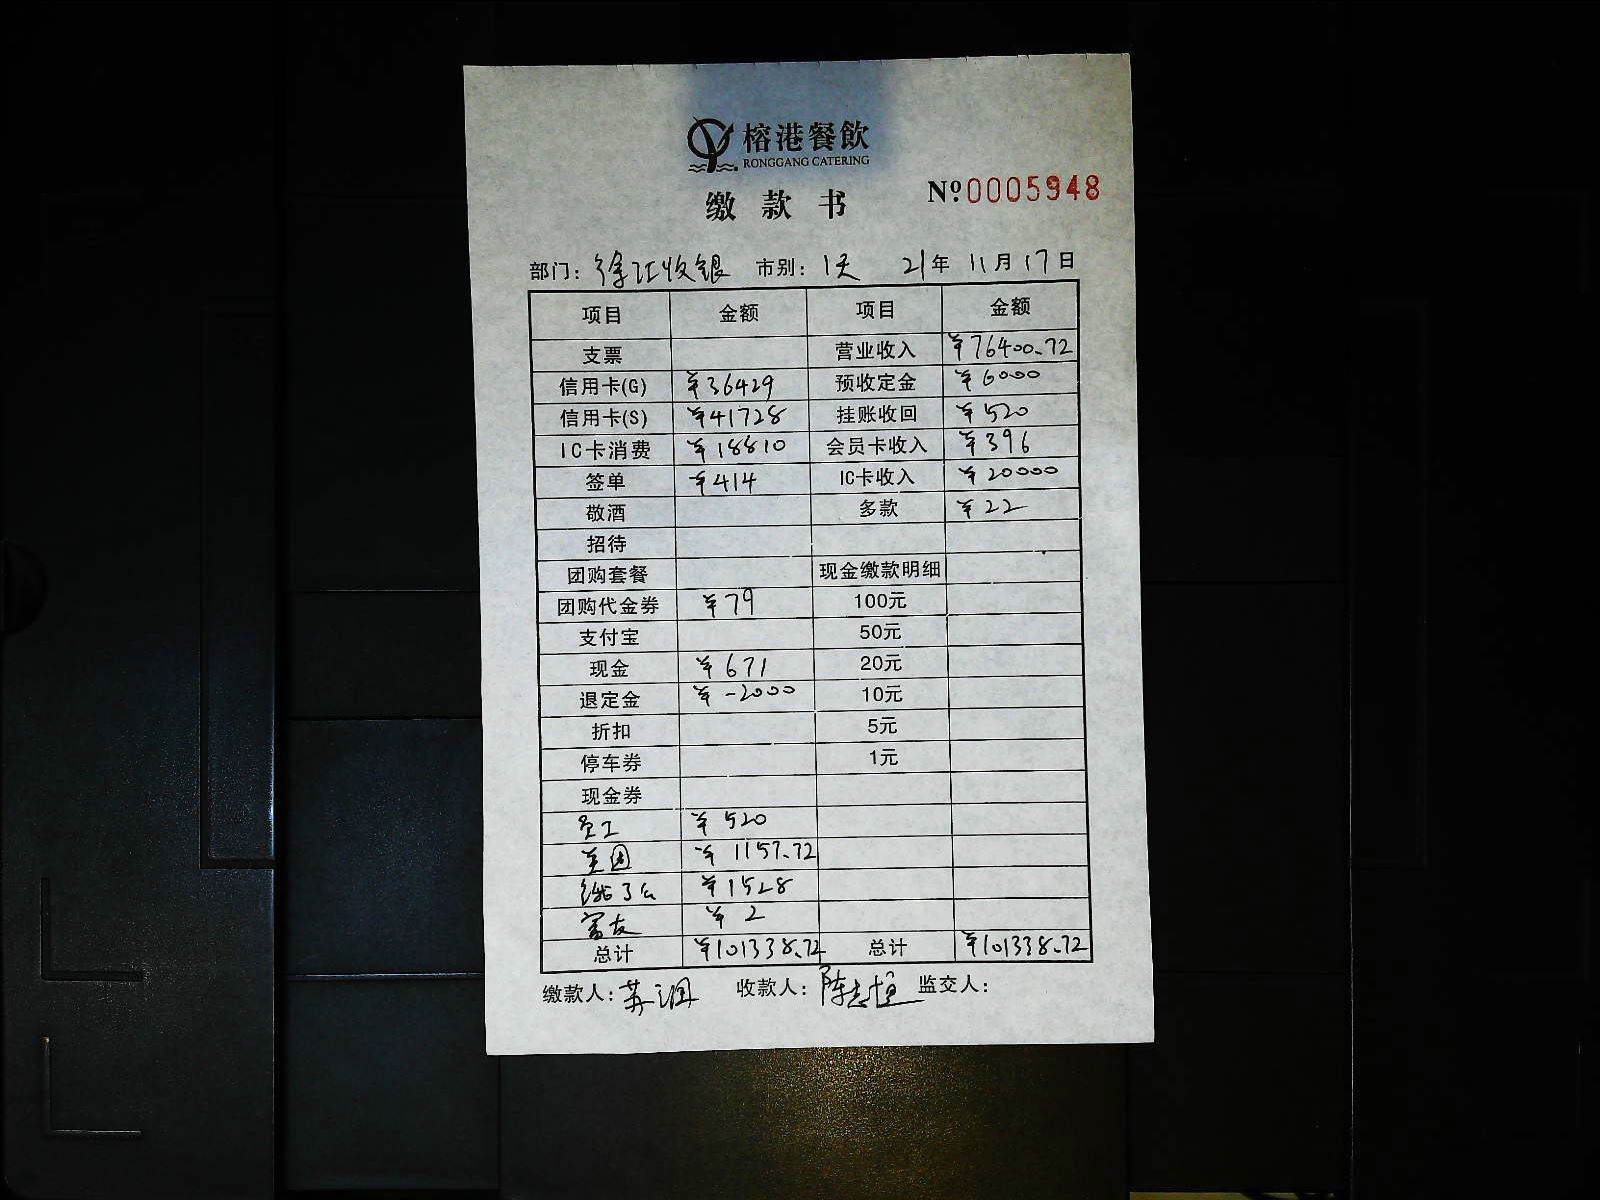 榕港餐飲
RONGGANG CATERING
缴款书
Nº.0005948
部门: 徐汇收银 市别: 1天 21年 11月17日
项目 金额 项目 金额
支票 营业收入 ¥76400.72
信用卡(G) ¥36429 预收定金 ¥6000
信用卡(S) ¥41728 挂账收回 ¥520
IC卡消费 ¥18810 会员卡收入 ¥396
签单 ¥414 IC卡收入 ¥20000
敬酒 多款 ¥22
招待
团购套餐 现金缴款明细
团购代金券 ¥79 100元
支付宝 50元
现金 ¥671 20元
退定金 ¥-2000 10元
折扣 5元
停车券 1元
现金券
员工 ¥520
美团 ¥1157.72
饿了么 ¥1528
富友 ¥2
总计 ¥101338.72 总计 ¥101338.72
缴款人: 收款人: 陈志恒 监交人: